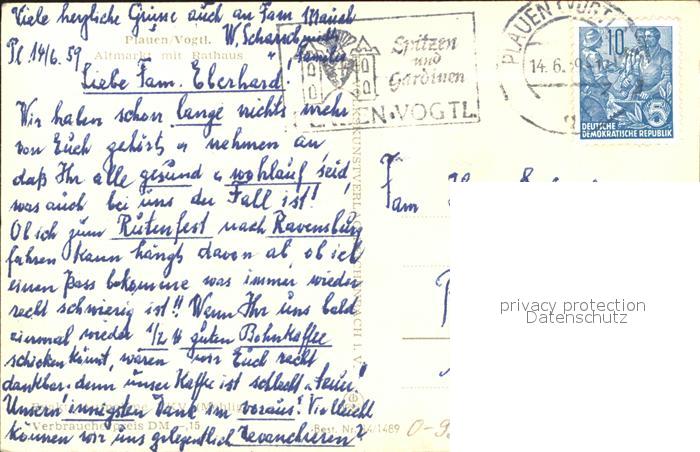 Viele herzliche Grüsse auch an Fam. Strauch
W. Scharschmidt
u. Familie
Plauen/Vogtl.
Altmarkt mit Rathaus
Pl 14/6. 59
Liebe Fam. Eberhard!
Wir haben schon lange nichts mehr
von Euch gehört u. nehmen an,
daß Ihr alle gesund u. wohlauf seid,
was auch bei uns der Fall ist!
Ob ich zum Rutenfest nach Ravensburg
fahren kann hängt davon ab ob ich
einen Pass bekomme was immer wieder
recht schwierig ist!! Wenn Ihr uns bald
einmal wieder 1/2 ℔ guten Bohnkaffee
schicken könnt, wären wir Euch recht
dankbar, denn unser Kaffee ist schlecht u. teuer!
Unsern innigsten Dank im voraus! Vielleicht
können wir uns gelegentlich revanchieren?
Verbraucherpreis DM -,15
Best. Nr. 14/1489
Spitzen
und
Gardinen
PLAUEN · VOGTL.
PLAUEN (VOGTL
14. 6. 59
10
5
DEUTSCHE
DEMOKRATISCHE REPUBLIK
Fam
privacy protection
Datenschutz